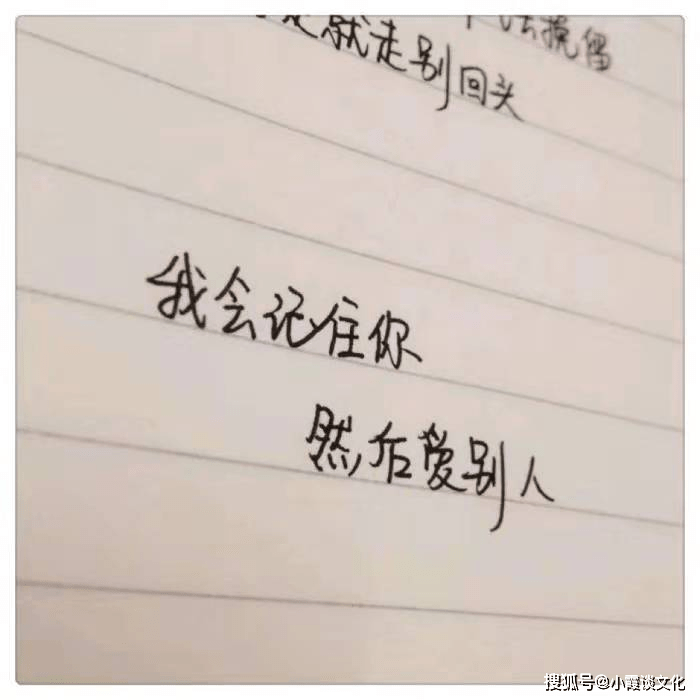 法挽留
就走别回头
我会记住你
然后爱别人
搜狐号@小霞谈文化